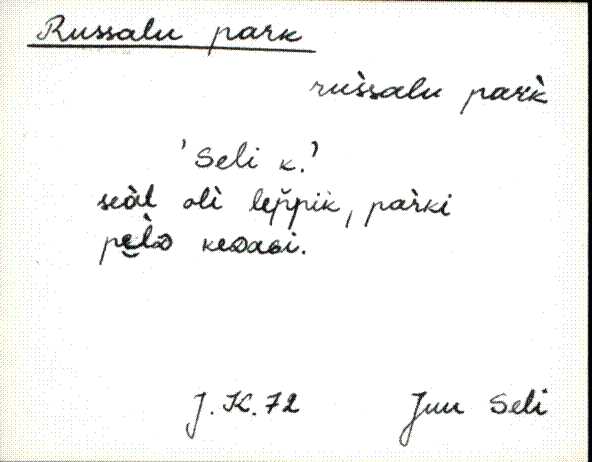 Russalu park
rùssalu par̀k
'Seli k.'
seàl olì lep̆pik, par̀ki
pe̮l̀ᴅ keᴅagi.
J.K.72 Juu Seli